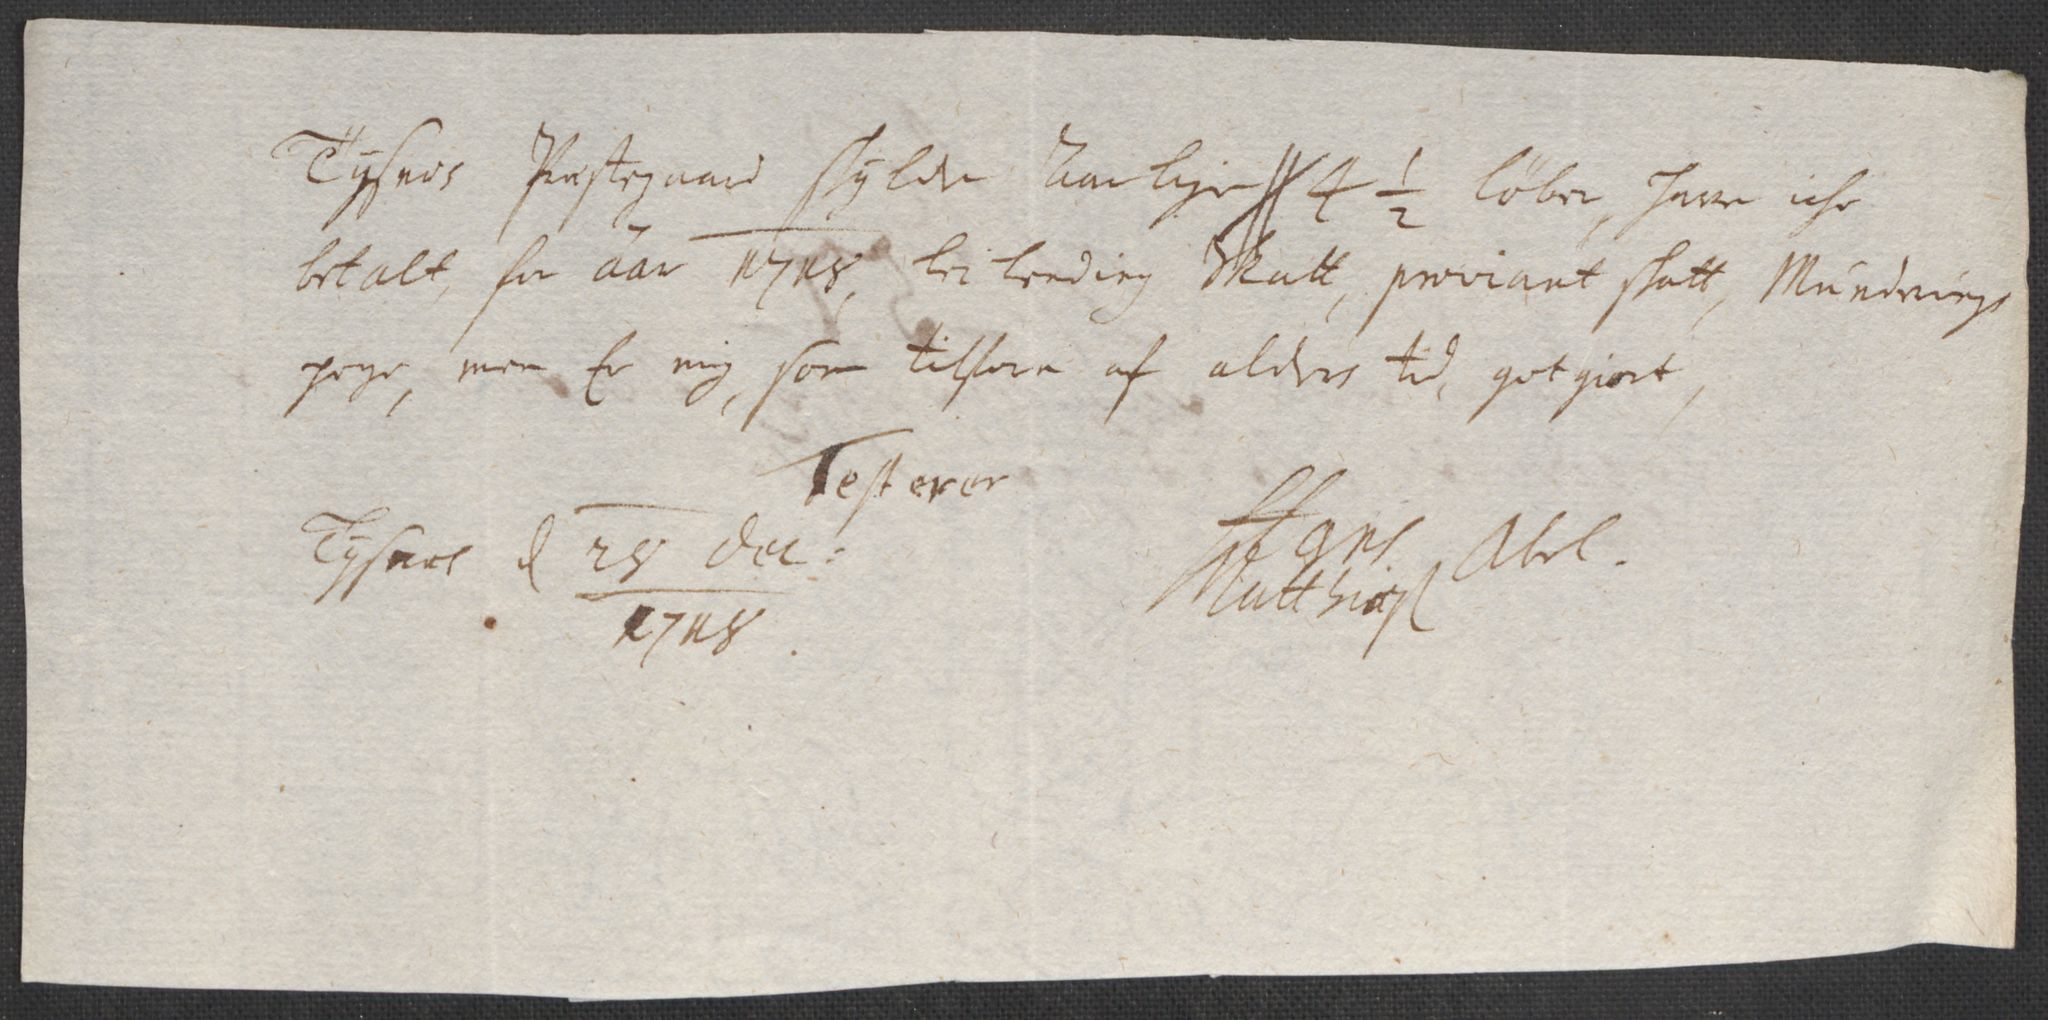 Tÿsnes Præstegaard skÿlder Aarligen // 4 1/2 løber, haver iche
betalt, for åår 1718, leilending Skatt, proviant skatt, Munderings
penge, men Er mig, som tilforn af alders tid, got giort,
Testerer
Tÿsnes d 28 dec:
1718.
Hans Abel.
Matthiaß